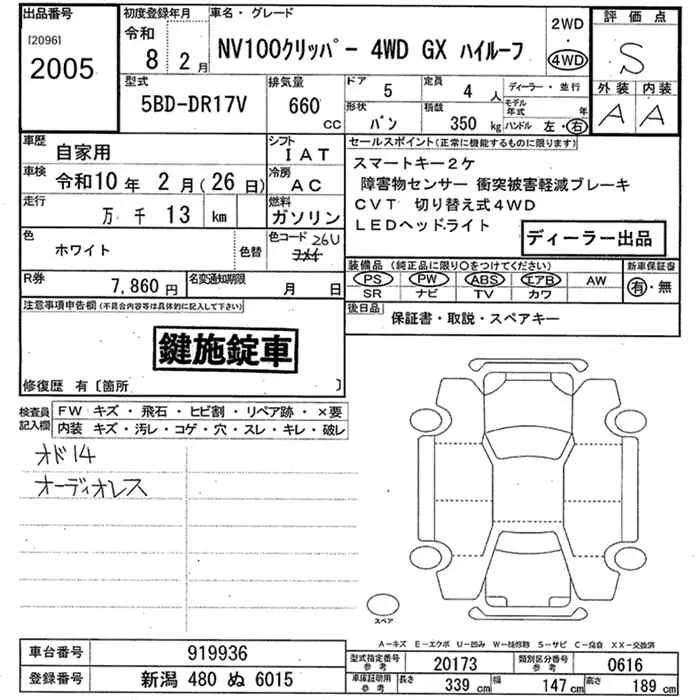 出品番号
[2096]
2005
初度登録年月
令和
8 2月
車名・グレード
NV100クリッパー 4WD GX ハイルーフ
2WD
・
4WD
評価点
S
外装 内装
A A
型式
5BD-DR17V
排気量
660
cc
ドア
5
定員
4人
形状
バン
積載
350kg
ディーラー・並行
モデル年式 年
ハンドル 左・右
車歴
自家用
シフト
IAT
車検
令和10年 2月(26日)
冷房
AC
走行
万 千 13 km
燃料
ガソリン
色
ホワイト
色替
色コード 26U
R券
7,860円
名変通知期限
月 日
セールスポイント(正常に機能するものに限ります)
スマートキー2ケ
障害物センサー 衝突被害軽減ブレーキ
CVT 切り替え式4WD
LEDヘッドライト
ディーラー出品
装備品 (純正品に限り○をつけてください)
PS PW ABS エアB AW
SR ナビ TV カワ
新車保証書
有・無
後日品
保証書・取説・スペアキー
注意事項申告欄(不具合内容等は具体的に記入して下さい)
鍵施錠車
修復歴 有〔箇所 〕
検査員記入欄
FW キズ・飛石・ヒビ割・リペア跡・×要
内装 キズ・汚レ・コゲ・穴・スレ・キレ・破レ
オド14
オーディオレス
スペア
A-キズ E-エクボ U-凹み W-補修物 S-サビ C-腐食 XX-交換済
車台番号
919936
登録番号
新潟 480 ぬ 6015
型式指定番号
参考
20173
類別区分番号
参考
0616
車庫証明用
参考
長さ
339 cm
幅
147 cm
高さ
189 cm